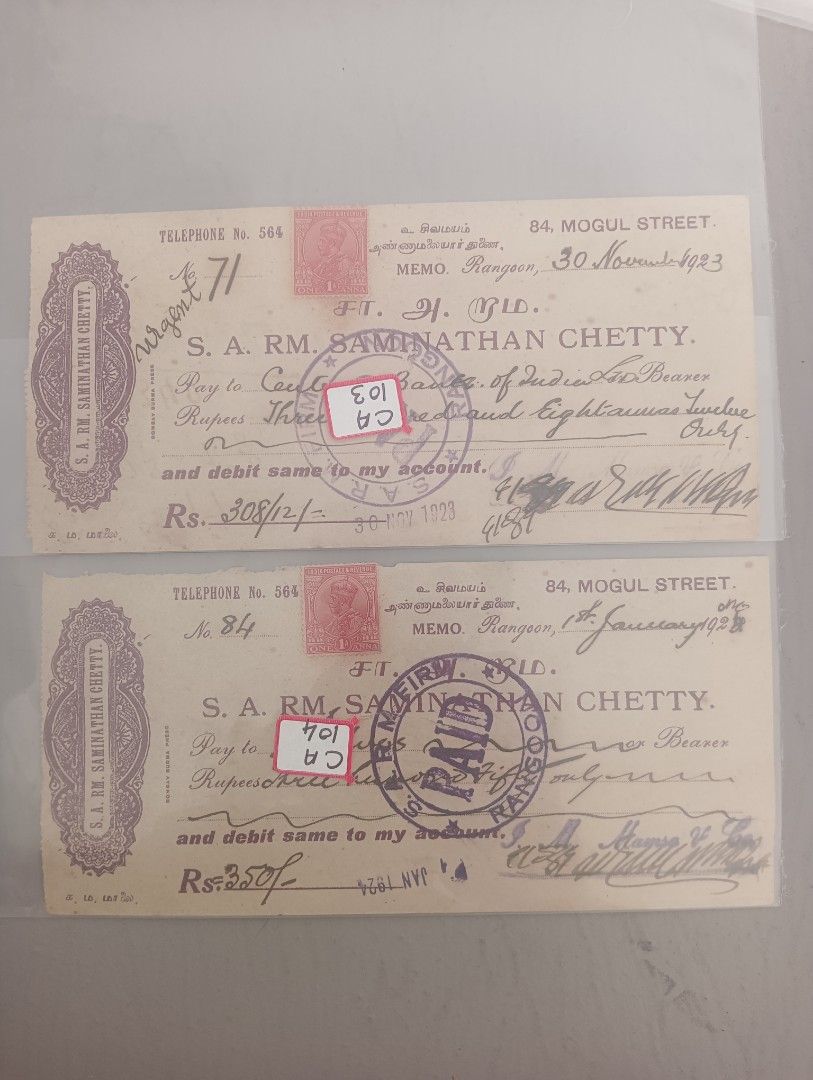 TELEPHONE No. 564
INDIA POSTAGE & REVENUE
ONE 1A ANNA
உ சிவமயம்
அண்ணாமலையார் துணை.
84, MOGUL STREET.
No. 71
urgent
MEMO. Rangoon, 30 November 1923
சா. அ. ரூம.
S. A. RM. SAMINATHAN CHETTY.
S. A. RM. SAMINATHAN CHETTY.
BOMBAY BURMA PRESS
Pay to Bank of India Ltd Bearer
CA
103
Rupees and Eight annas Twelve
Only.
and debit same to my account.
Rs. 308/12/-
30 NOV 1923
க. ம. மாலை.
TELEPHONE No. 564
INDIA POSTAGE & REVENUE
ONE 1A ANNA
உ சிவமயம்
அண்ணாமலையார் துணை.
84, MOGUL STREET.
No. 84
MEMO. Rangoon, 1st January 192
சா. ரூம.
S. A. RM. SAMINATHAN CHETTY.
S. A. RM. SAMINATHAN CHETTY.
BOMBAY BURMA PRESS
Pay to or Bearer
CA
104
Rupees three only
S. A. R. M. FIRM. RANGOON
PAID
and debit same to my account.
Rs. 350/-
JAN 1924
க. ம. மாலை.